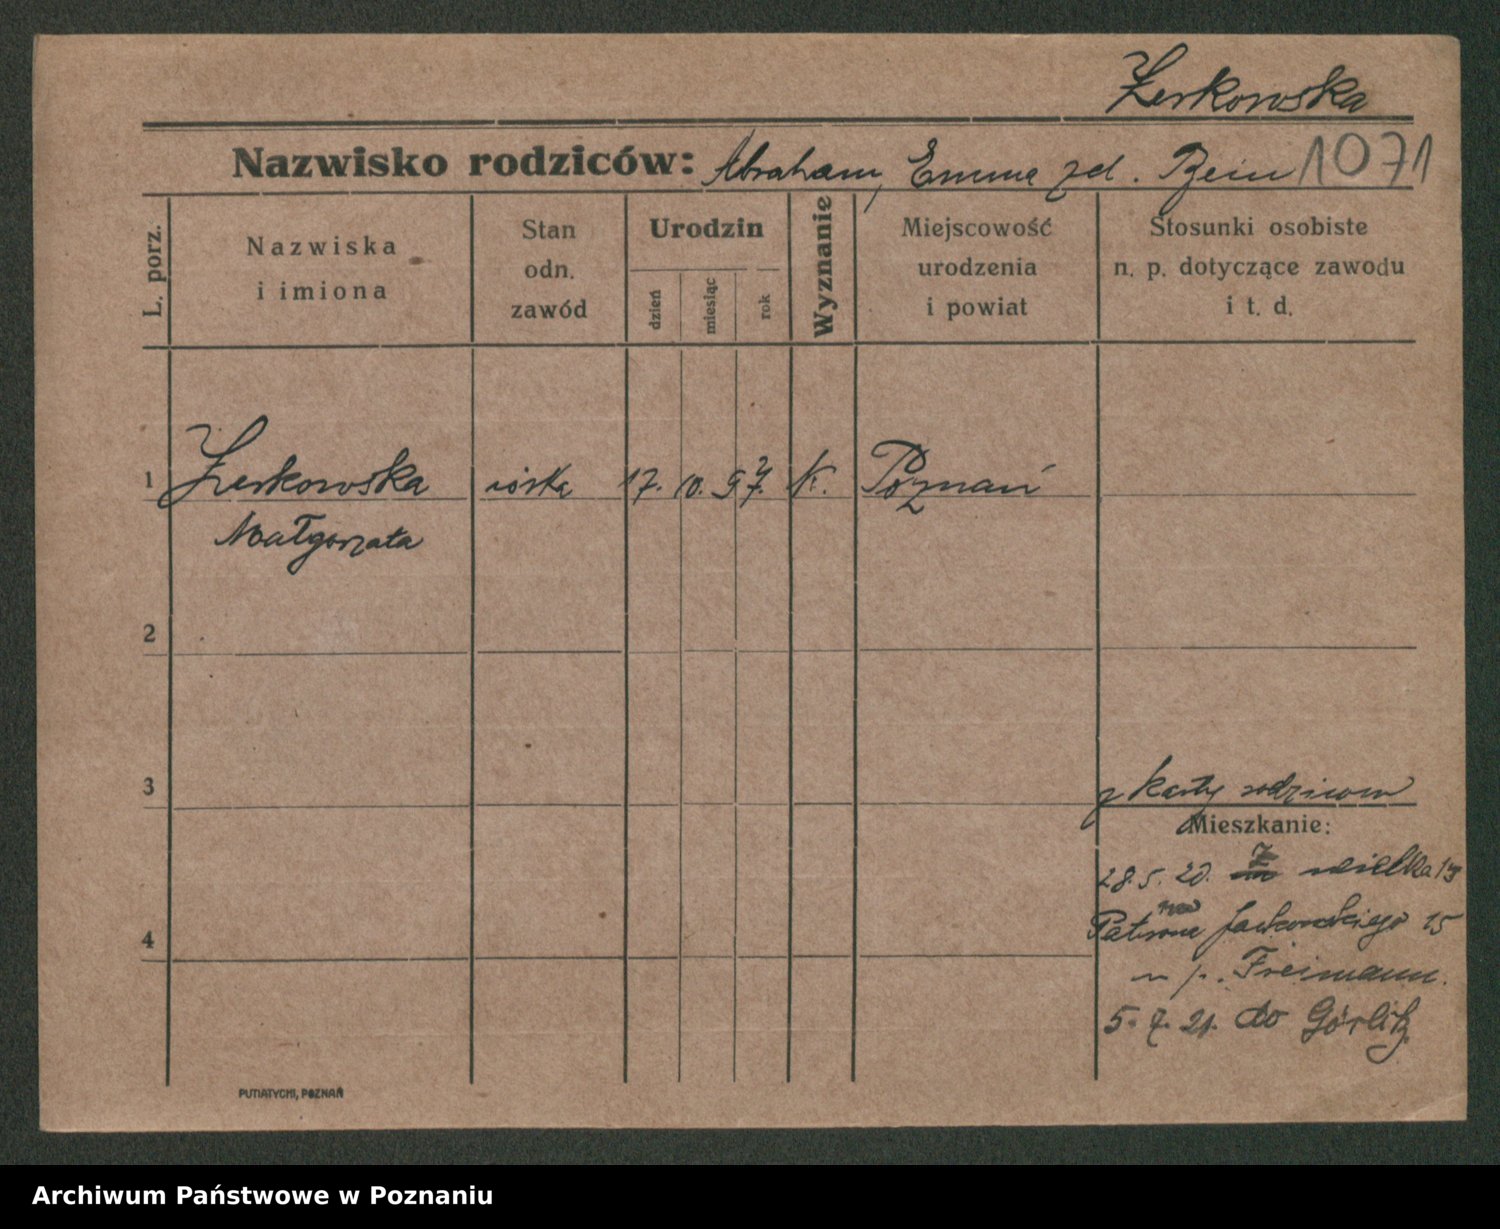 Żerkowska
Nazwisko rodziców: Abraham, Emma zd. Bein 1071
L. porz.
Nazwiska
i imiona
Stan
odn.
zawód
Urodzin
dzień
miesiąc
rok
Wyznanie
Miejscowość
urodzenia
i powiat
Stosunki osobiste
n. p. dotyczące zawodu
i t. d.
1 Żerkowska córka 17. 10. 97. Poznań
Małgorzata
2
3
z karty rodziców
Mieszkanie:
28.5.20. wielka 13
4
Patrona Jackowskiego 15
Freimann.
5. 7. 21. do Görlitz
PUTIATYCKI, POZNAŃ
Archiwum Państwowe w Poznaniu